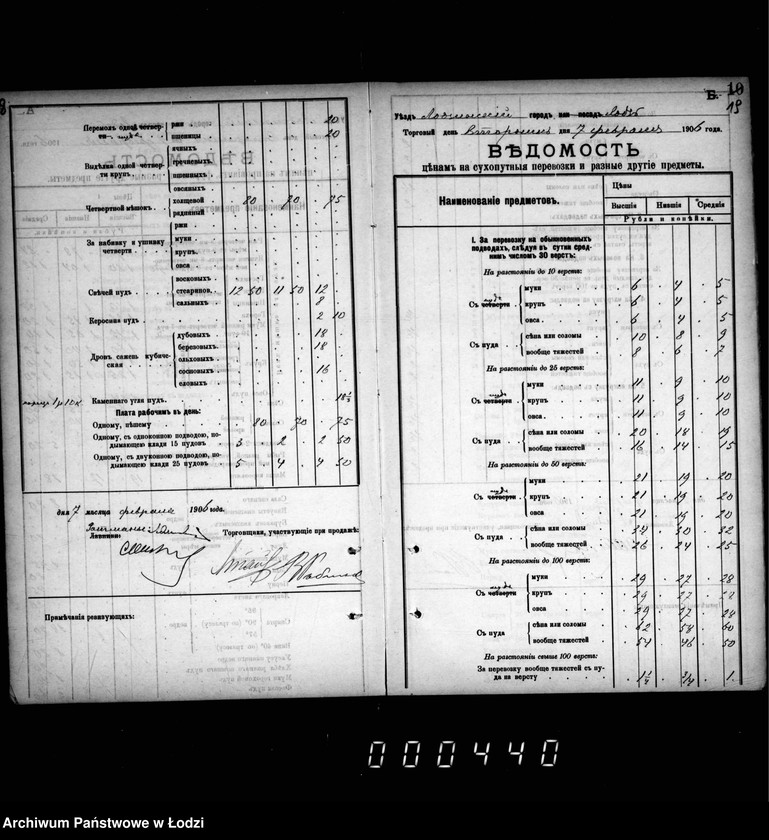 Перемолъ одной четверти пуда
ржи 20
пшеницы 20
Выдѣлка одной четверти крупъ
ячныхъ
гречневыхъ
пшенныхъ
овсяныхъ
Четвертной мѣшокъ
холщевой 80 70 75
рядниный
За набивку и ушивку четверти
ржи
муки
крупъ
овса
Свѣчей пудъ
восковыхъ
стеаринов. 12 50 11 50 12
сальныхъ 8
Керосина пудъ 2 10
Дровъ сажень кубическая
дубовыхъ 18
березовыхъ 18
ольховыхъ
сосновыхъ 16
еловыхъ
Каменнаго угля пудъ 18½
Плата рабочимъ въ день:
Одному, пѣшему 80 70 75
Одному, съ одноконною подводою, подымающею клади 15 пудовъ 3 2 2 50
Одному, съ двуконною подводою, подымающею клади 25 пудовъ 5 4 4 50
дня 7 мѣсяца февраля 1906 года.
Торговщики, участвующіе при продажѣ:
Примѣчанія ревизующихъ:
Б. 10
19
Уѣздъ Лодзинскій городъ или посадъ Лодзь
Торговый день Вторникъ дня 7 февраля 1906 года.
ВѢДОМОСТЬ
цѣнамъ на сухопутныя перевозки и разные другіе предметы.
Наименованіе предметовъ.
Цѣны
Высшія Низшія Среднія
Рубли и копѣйки.
I. За перевозку на обыкновенныхъ подводахъ, слѣдуя въ сутки среднимъ числомъ 30 верстъ:
На разстояніи до 10 верстъ:
Съ четверти пуда
муки 6 4 5
крупъ 6 4 5
овса 6 4 5
Съ пуда
сѣна или соломы 10 8 9
вообще тяжестей 8 6 7
На разстояніи до 25 верстъ:
Съ четверти пуда
муки 11 9 10
крупъ 11 9 10
овса 11 9 10
Съ пуда
сѣна или соломы 20 18 19
вообще тяжестей 16 14 15
На разстояніи до 50 верстъ:
Съ четверти пуда
муки 21 19 20
крупъ 21 19 20
овса 21 19 20
Съ пуда
сѣна или соломы 34 30 32
вообще тяжестей 26 24 25
На разстояніи до 100 верстъ:
Съ четверти пуда
муки 29 27 28
крупъ 29 27 28
овса 29 27 28
Съ пуда
сѣна или соломы 62 58 60
вообще тяжестей 54 46 50
На разстояніи свыше 100 верстъ:
За перевозку вообще тяжестей съ пуда на версту 1¼ ¾ 1
000440
Archiwum Państwowe w Łodzi